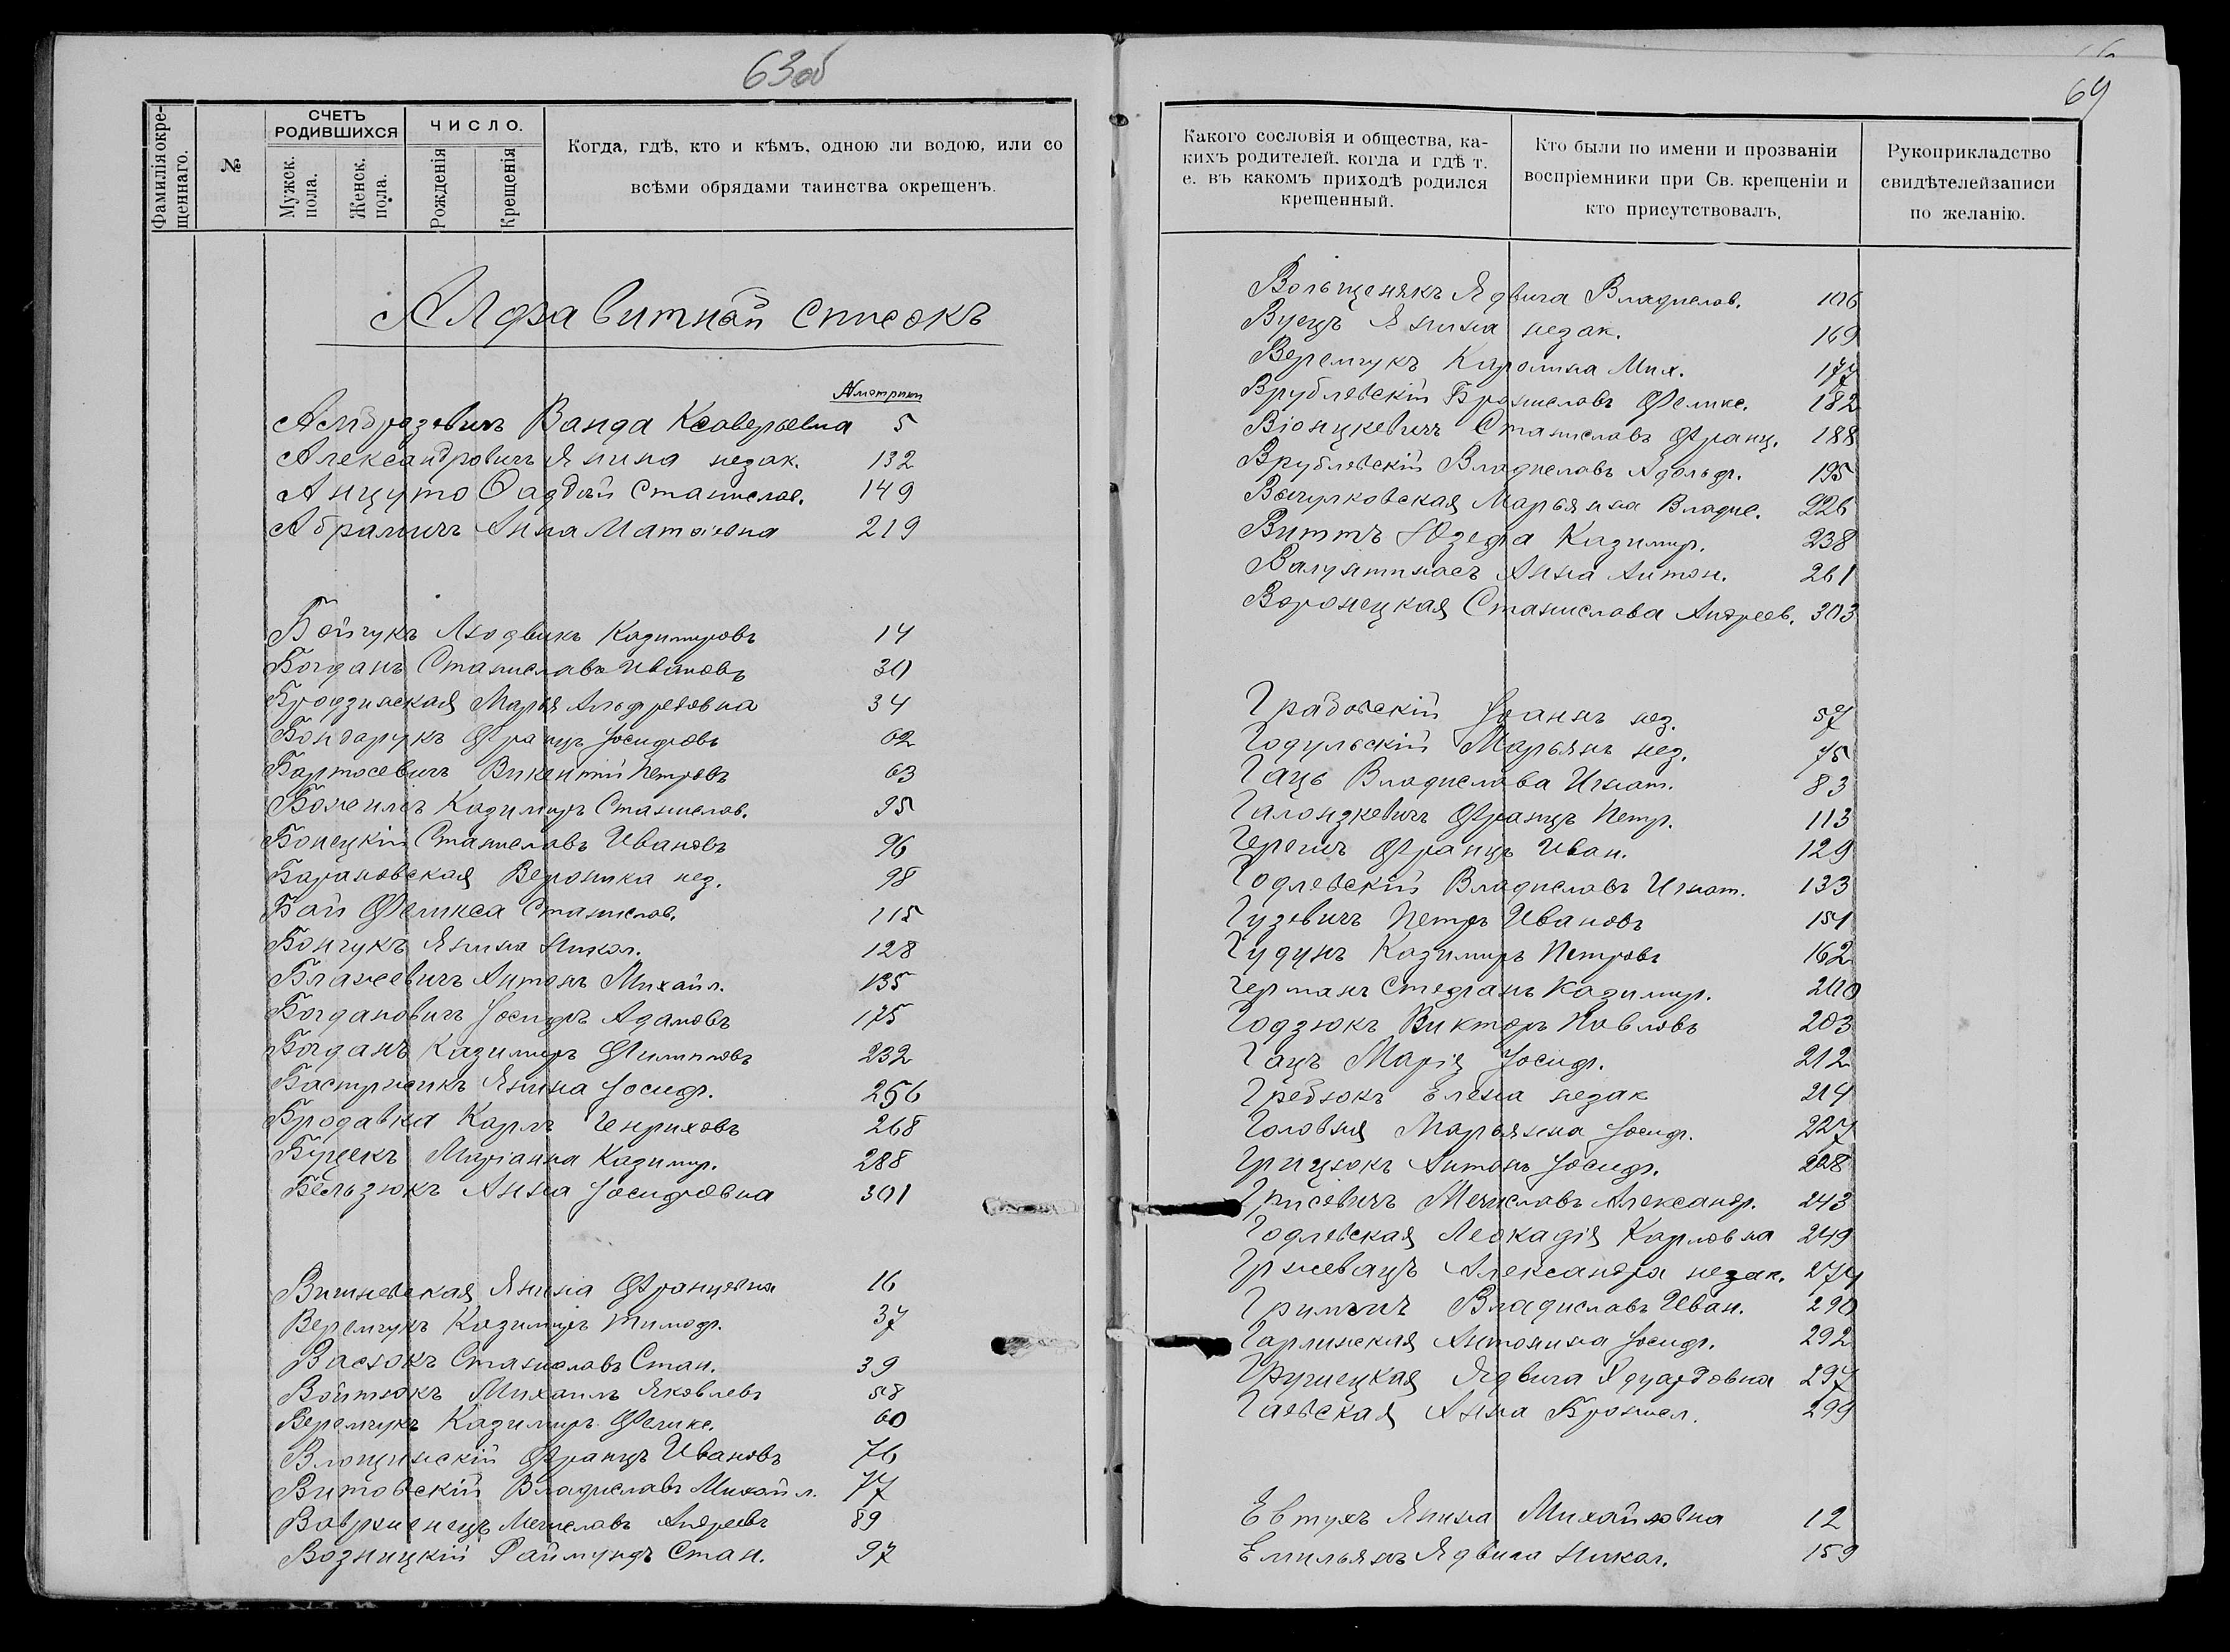 63об
Фамилія окрещеннаго.
№
СЧЕТЪ РОДИВШИХСЯ
Мужск. пола.
Женск. пола.
ЧИСЛО.
Рожденія
Крещенія
Когда, гдѣ, кто и кѣмъ, одною ли водою, или со
всѣми обрядами таинства окрещенъ.
Алфавитный списокъ
№ метрики
Амброзевичъ Ванда Ксаверьевна 5
Александровичъ Янина незак. 132
Анцуто Фаддѣй Станислав. 149
Абрамичъ Анна Матвіевна 219
Бойчукъ Людвикъ Казимировъ 14
Богданъ Станиславъ Ивановъ 30
Бродзинская Марья Альфредовна 34
Бондарукъ Францъ Іосифовъ 62
Бартосевичъ Викентій Петровъ 63
Казимиръ Станислав. 95
Бонецкій Станиславъ Ивановъ 96
Барановская Вероника нез. 98
Бай Феликса Станислав. 115
Бончукъ Янина Никол. 128
Блажеевичъ Антонъ Михайл. 135
Богдановичъ Іосифъ Адамовъ 175
Богданъ Казимиръ Филиповъ 232
Янина Іосиф. 256
Бродавка Карлъ Генриховъ 268
Маріанна Казимир. 288
Бельзюкъ Анна Іосифовна 301
Вишневская Янина Францевна 16
Веремчукъ Казимиръ Тимоф. 37
Васюкъ Станиславъ Стан. 39
Войтюкъ Михаилъ Яковлевъ 58
Веремчукъ Казимиръ Феликс. 60
Влощинскій Францъ Ивановъ 76
Витовскій Владиславъ Михайл. 77
Мечиславъ Андреевъ 89
Возницкій Раймундъ Стан. 97
69
Какого сословія и общества, ка-
кихъ родителей, когда и гдѣ т.
е. въ какомъ приходѣ родился
крещенный.
Кто были по имени и прозваніи
воспріемники при Св. крещеніи и
кто присутствовалъ,
Рукоприкладство
свидѣтелейзаписи
по желанію.
Вольщенякъ Ядвига Владислав. 106
Вуецъ Янина незак. 169
Веремчукъ Каролина Мих. 177
Врублевскій Брониславъ Феликс. 182
Віонцкевичъ Станиславъ Франц. 188
Врублевскій Владиславъ Адольф. 195
Марьянна Владис. 226
Виттъ Юзефа Казимир. 238
Валунтинасъ Анна Антон. 261
Воронецкая Станислава Андреев. 303
Грабовскій Іоаннъ нез. 57
Годульскій Марьянъ нез. 75
Гацъ Владислава Игнат. 83
Галонзкевичъ Францъ Петр. 113
Герегичъ Францъ Иван. 129
Годлевскій Владиславъ Игнат. 133
Гузевичъ Петръ Ивановъ 151
Гудунъ Казимиръ Петровъ 162
Германъ Стефанъ Казимир. 200
Годзюкъ Викторъ Павловъ 203
Гацъ Марія Іосиф. 212
Гребюкъ Елена незак 214
Головня Марьянна Іосиф. 227
Грицюкъ Антонъ Іосиф. 228
Грисевичъ Мечиславъ Александр. 243
Годлевская Леокадія Карловна 249
Гржевацъ Александра незак. 274
Владиславъ Иван. 290
Гарлинская Антонина Іосиф. 292
Ядвига Эдуардовна 297
Гаевская Анна Бронисл. 299
Евтухъ Янина Михайловна 12
Емильянъ Ядвига Никол. 159